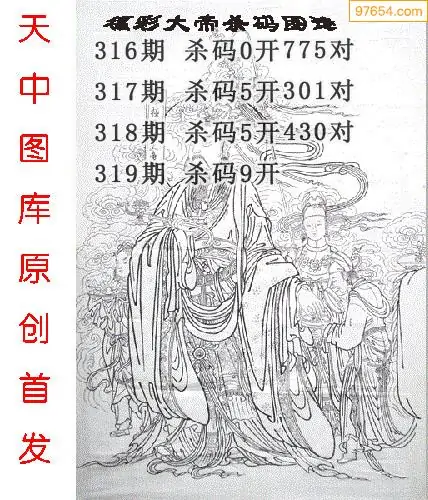 97654.com
福彩大帝杀码图谜
316期 杀码0开775对
317期 杀码5开301对
318期 杀码5开430对
319期 杀码9开
天中图库原创首发